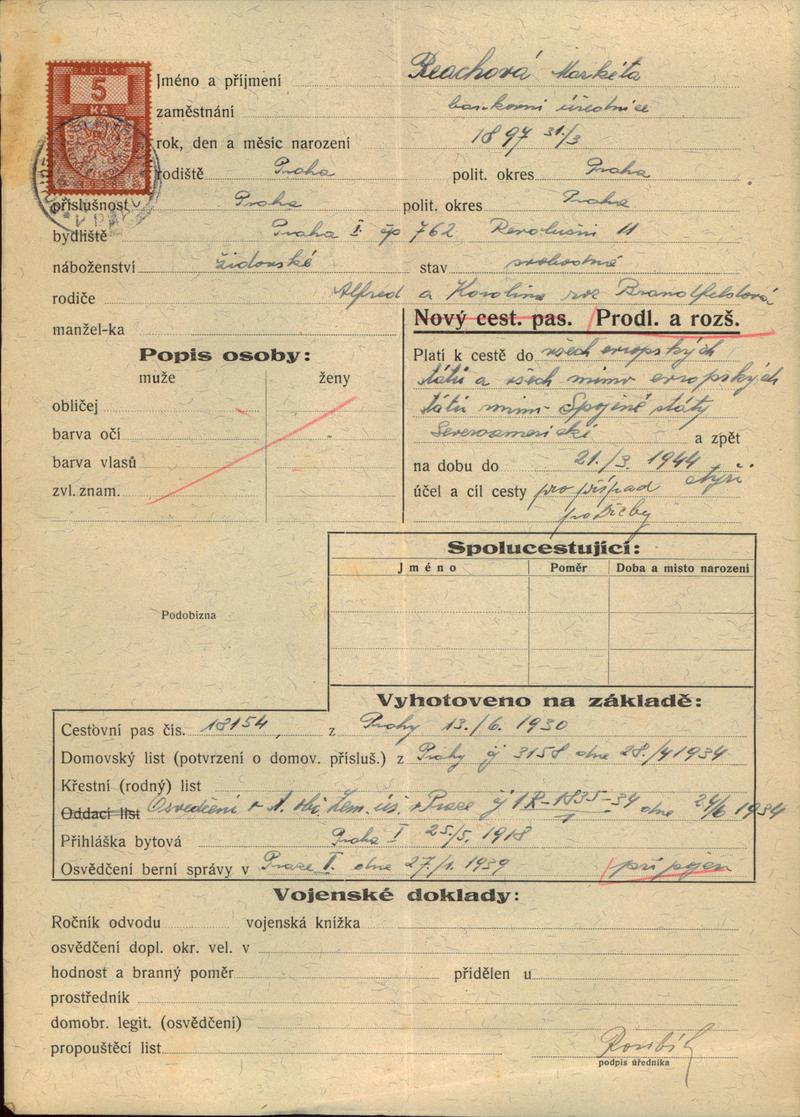 KOLEK
5
Kč
Jméno a příjmení Reachová Markéta
zaměstnání bankovní úřednice
rok, den a měsíc narození 1897 31/3
rodiště Praha polit. okres Praha
příslušnost Praha polit. okres Praha
bydliště Praha I. čp 762 Revoluční 11
náboženství židovské stav svobodná
rodiče Alfred a Karolina roz
manžel-ka
Nový cest. pas. Prodl. a rozš.
Popis osoby:
muže ženy
obličej
barva očí
barva vlasů
zvl. znam.
Platí k cestě do všech evropských
států a všech mimo evropských
států mimo Spojené státy
Severoamerické a zpět
na dobu do 21./3. 1944 čtyři
účel a cíl cesty pro případ
potřeby
Spolucestující:
Jméno Poměr Doba a misto narození
Podobizna
Vyhotoveno na základě:
Cestovní pas čís. 18154, z Prahy 13./6. 1930
Domovský list (potvrzení o domov. přísluš.) z Prahy čj 3158 dne 28./4 1934
Křestní (rodný) list
Oddací list Osvědčení v Praze čj dne 1934
Přihláška bytová Praha I 25/5. 1918
Osvědčení berní správy v Praze I. dne 27./1. 1939 připojen
Vojenské doklady:
Ročník odvodu vojenská knížka
osvědčení dopl. okr. vel. v
hodnost a branný poměr přidělen u
prostředník
domobr. legit. (osvědčení)
propouštěcí list
podpis úředníka